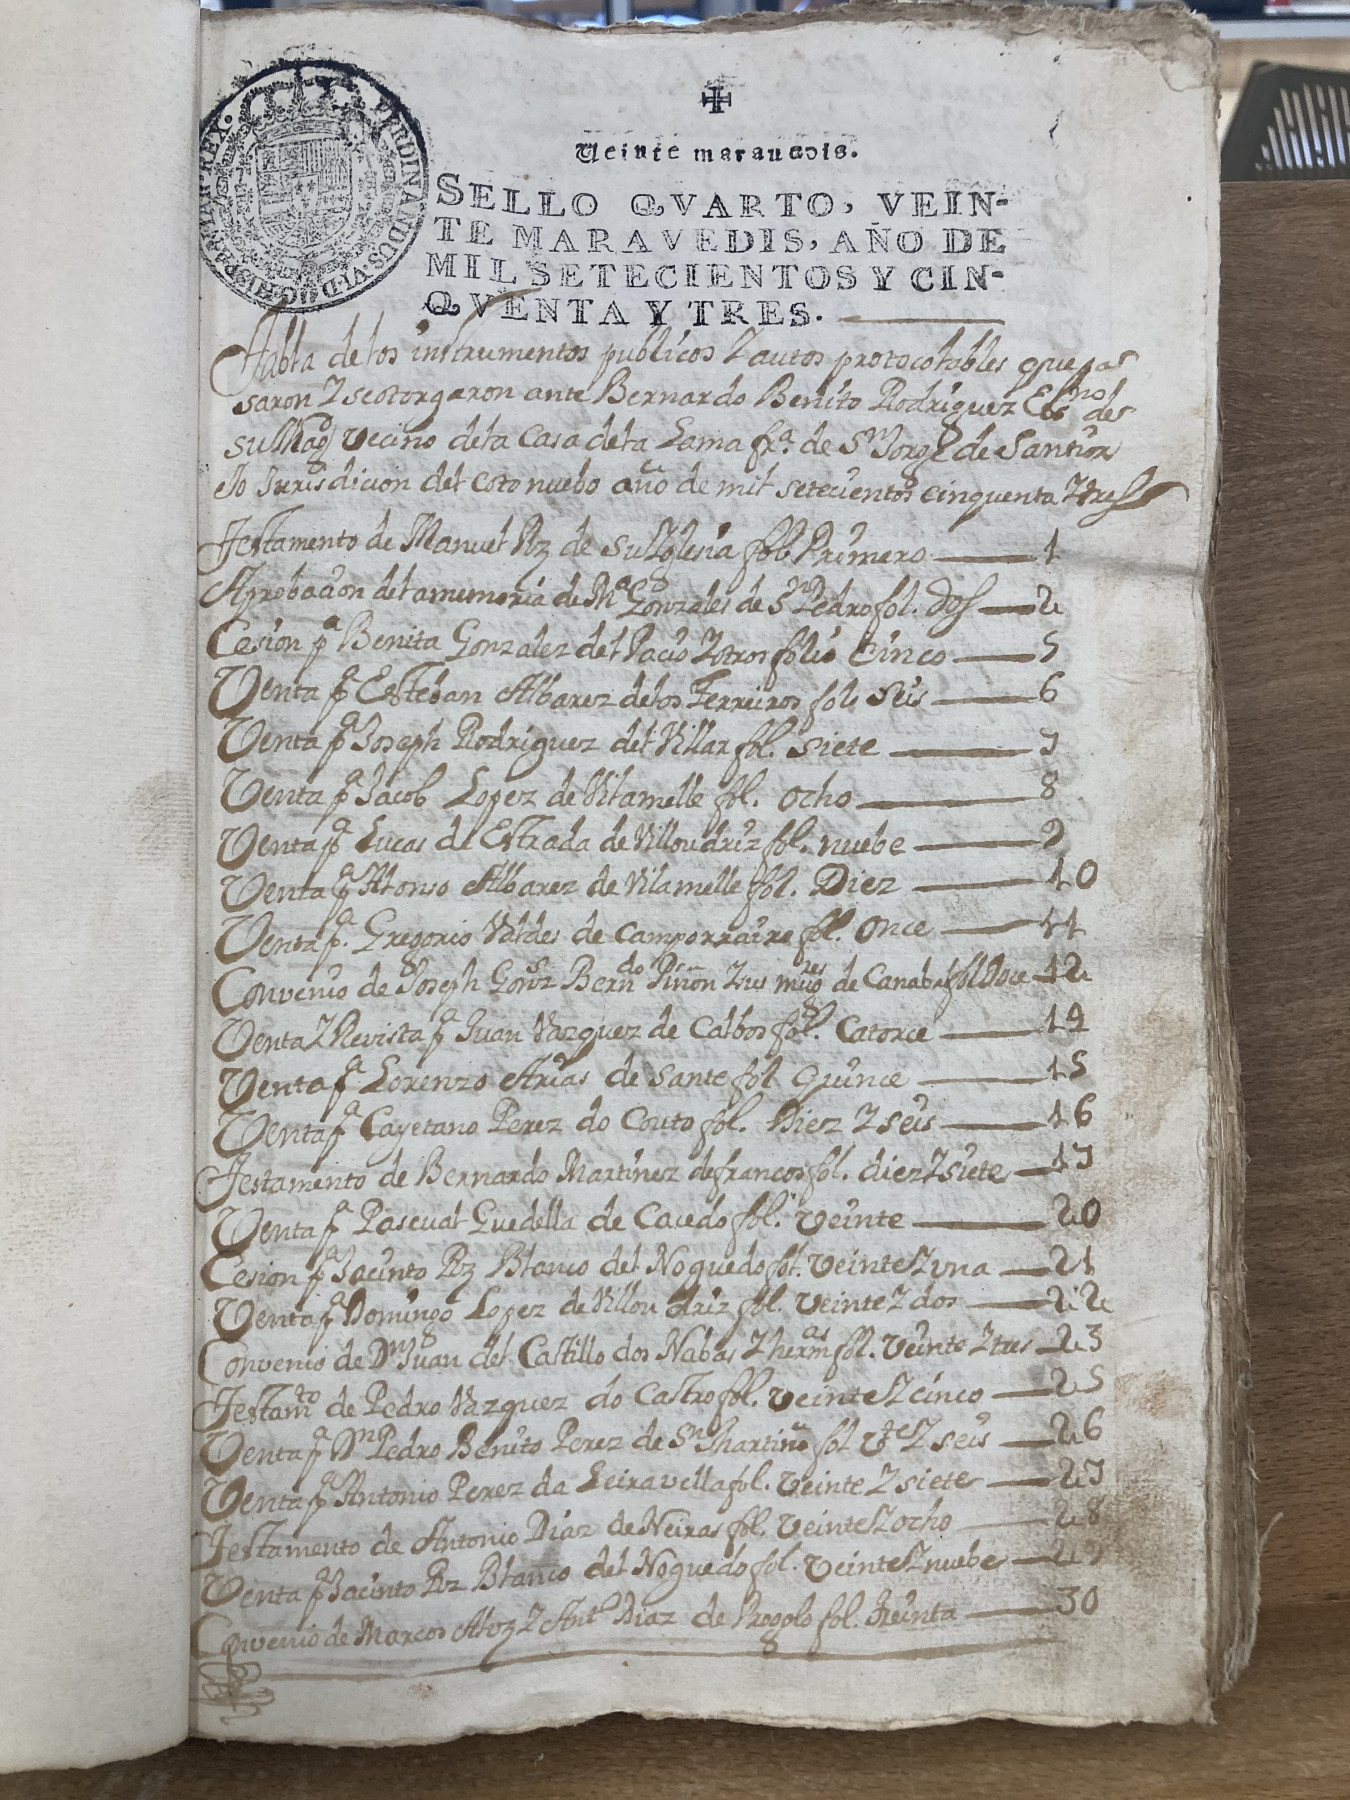 ✠
Veinte marauedis.
SELLO QVARTO, VEIN-
TE MARAVEDIS, AÑO DE
MIL SETECIENTOS Y CIN-
QVENTA Y TRES.
FERDINANDUS·VI·D·G·HISPANIAR·REX·
Tabla de los instrumentos publicos Y autos protocolables que pas
saron Y se otorgaron ante Bernardo Benito Rodriguez Es.no de
su Mag.d Vecino de la Casa de la Lama fr.a de S.n Jorge de Santior
Jo Jurisdicion del Coto nuebo año de mil setecientos cinquenta Y tres
Testamento de Manuel Rz de Su Yglesia fol. Primero 1
Aprobacion de la memoria de M.a Gonzales de S.n Pedro fol. dos 2
Cesion p.a Benita Gonzalez del Pacio Y otros folio Cinco 5
Venta p.a Esteban Albarez de los Ferreiros fol. Seis 6
Venta p.a Joseph Rodriguez del Villar fol. siete 7
Venta p.a Jacob Lopez de Vilamelle fol. ocho 8
Venta p.a Lucas de Estrada de Villoudriz fol. nuebe 9
Venta p.a Alonso Albarez de Vilamelle fol. Diez 10
Venta p.a Gregorio Valdes de Camporraire fol. Once 11
Convenio de Joseph Gonz.s Bern.do Piñon Y sus mug.res de Canaba fol Doce 12
Venta Y Revista p.a Juan Vazquez de Calbos fol. Catorce 14
Venta p.a Lorenzo Arias de Sante fol Quince 15
Venta p.a Cayetano Perez do Couto fol. Diez Y seis 16
Testamento de Bernardo Martinez de francos fol. diez Y siete 17
Venta p.a Pascual Guedella de Cacedo fol. veinte 20
Cesion p.a Jacinto Rz Blanco del Noguedo fol. Veinte Y una 21
Venta p.a Domingo Lopez de Villoudriz fol. Veinte Y dos 22
Convenio de D.n Juan del Castillo dos Nabas Y herm.as fol. Veinte Y tres 23
Testam.to de Pedro Vazquez do Castro fol. Veinte Y cinco 25
Venta p.a D.n Pedro Benito Perez de S.n Martiño fol V.te Y seis 26
Venta p.a Antonio Perez da Leiravella fol. Veinte Y siete 27
Testamento de Antonio Diaz de Neiras fol. Veinte Y ocho 28
Venta p.a Jacinto Rz Blanco del Noguedo fol. Veinte Y nuebe 29
Convenio de Marcos Y Ant.o Diaz de Rogolo fol. Treinta 30